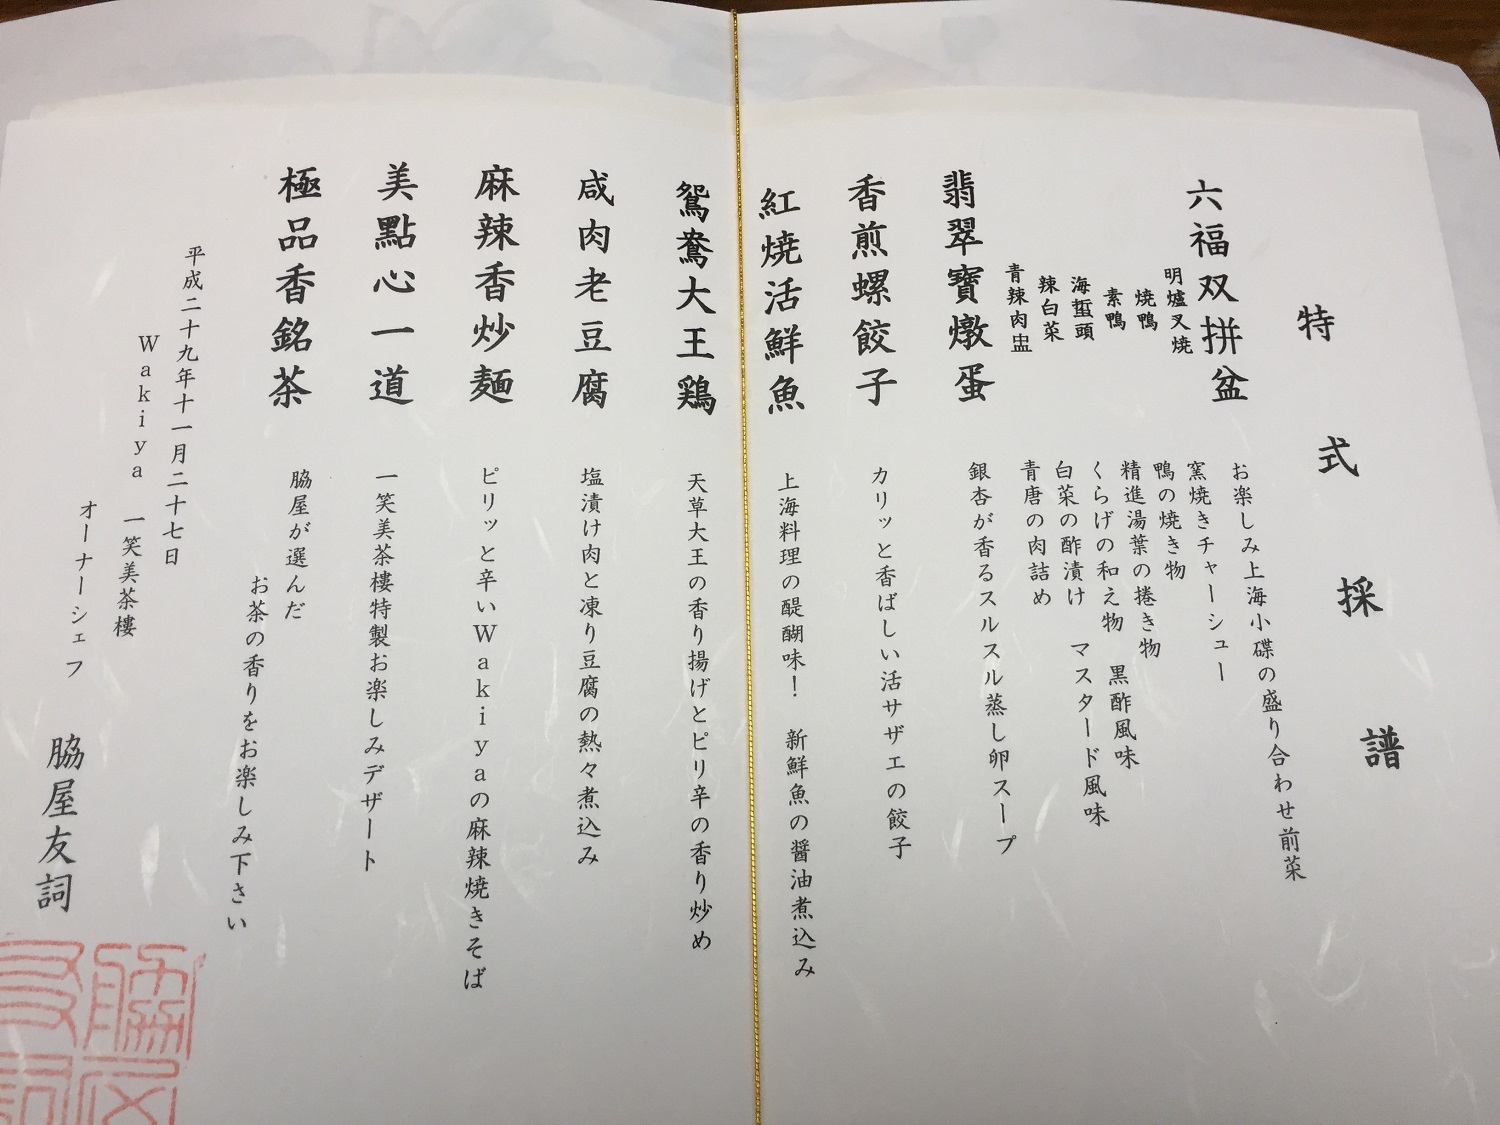 特式採譜
六福双拼盆
お楽しみ上海小碟の盛り合わせ前菜
明爐叉焼
窯焼きチャーシュー
焼鴨
鴨の焼き物
素鴨
精進湯葉の捲き物
海蜇頭
くらげの和え物 黒酢風味
辣白菜
白菜の酢漬け マスタード風味
青辣肉盅
青唐の肉詰め
翡翠寶燉蛋
銀杏が香るスルスル蒸し卵スープ
香煎螺餃子
カリッと香ばしい活サザエの餃子
紅焼活鮮魚
上海料理の醍醐味! 新鮮魚の醤油煮込み
鴛鴦大王鶏
天草大王の香り揚げとピリ辛の香り炒め
咸肉老豆腐
塩漬け肉と凍り豆腐の熱々煮込み
麻辣香炒麺
ピリッと辛いWakiyaの麻辣焼きそば
美點心一道
一笑美茶樓特製お楽しみデザート
極品香銘茶
脇屋が選んだ
お茶の香りをお楽しみ下さい
平成二十九年十一月二十七日
Wakiya 一笑美茶樓
オーナーシェフ 脇屋友詞